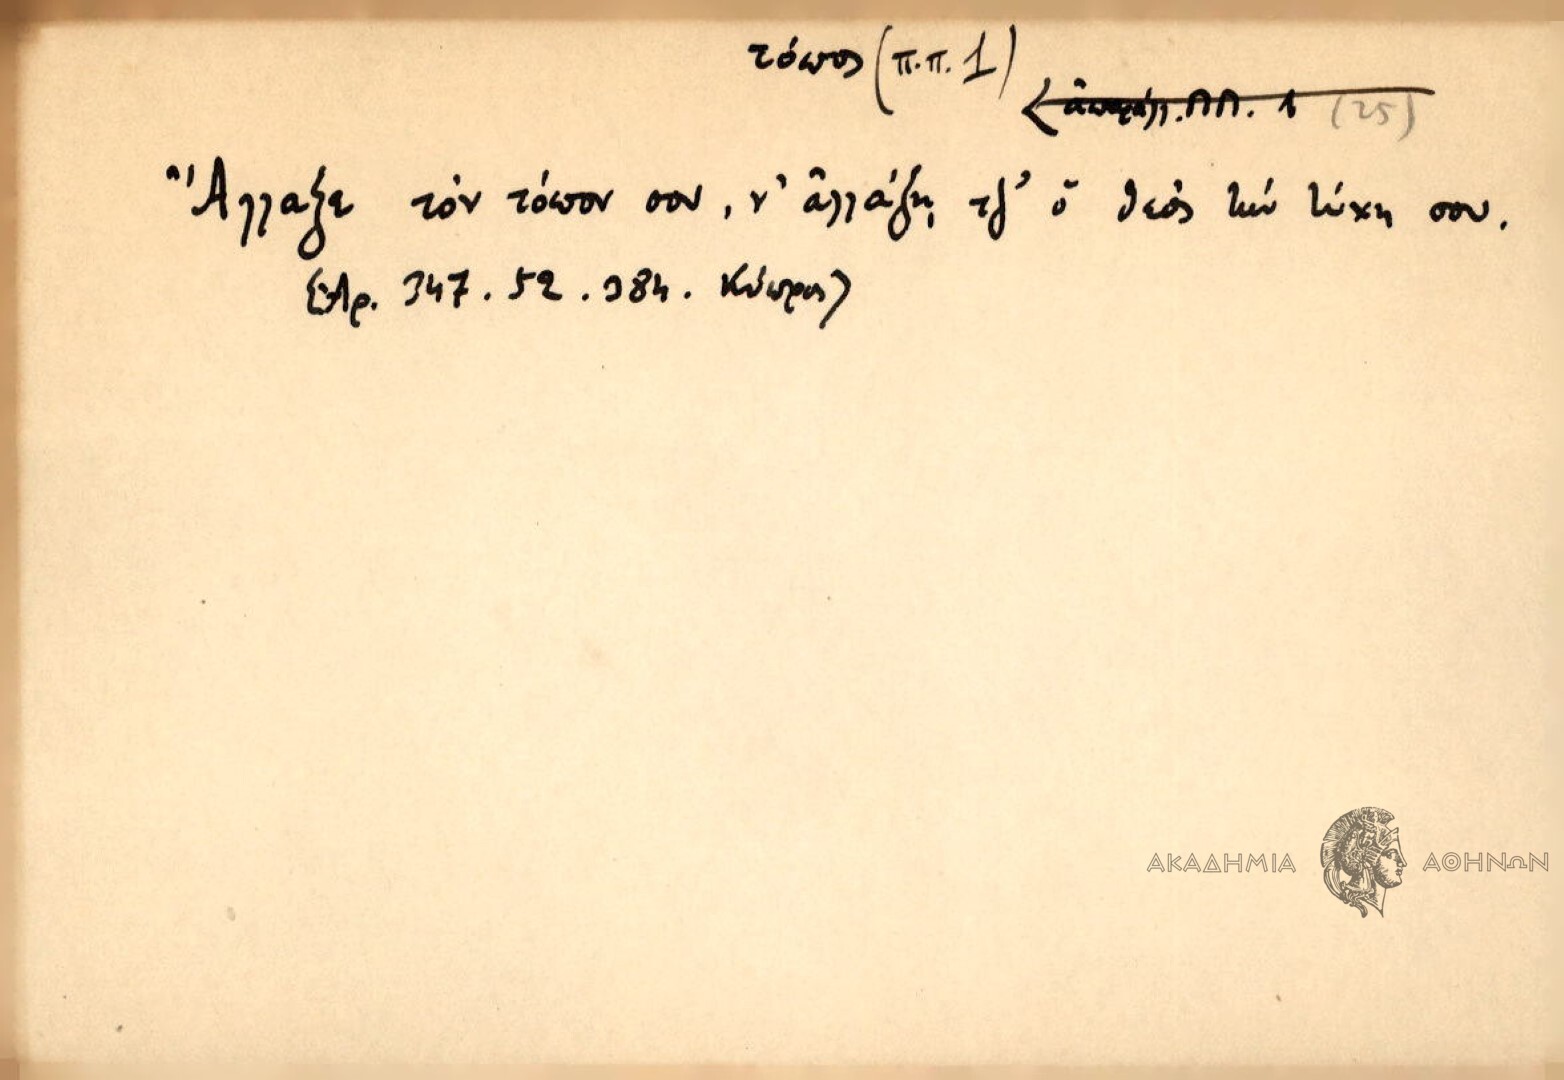 τόπος (π.π. 1)
ΠΠ. 1 (25)
Ἄλλαξε τὸν τόπον σου, ν' ἀλλάξῃ τζ' ὁ θεὸς τὴν τύχη σου.
(Ἀρ. 347. 52. 984. Κύπρος)
ΑΚΑΔΗΜΙΑ ΑΘΗΝΩΝ